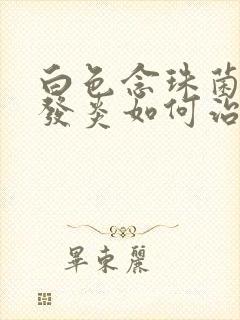 白色念珠菌
發炎如何治
畢東麗